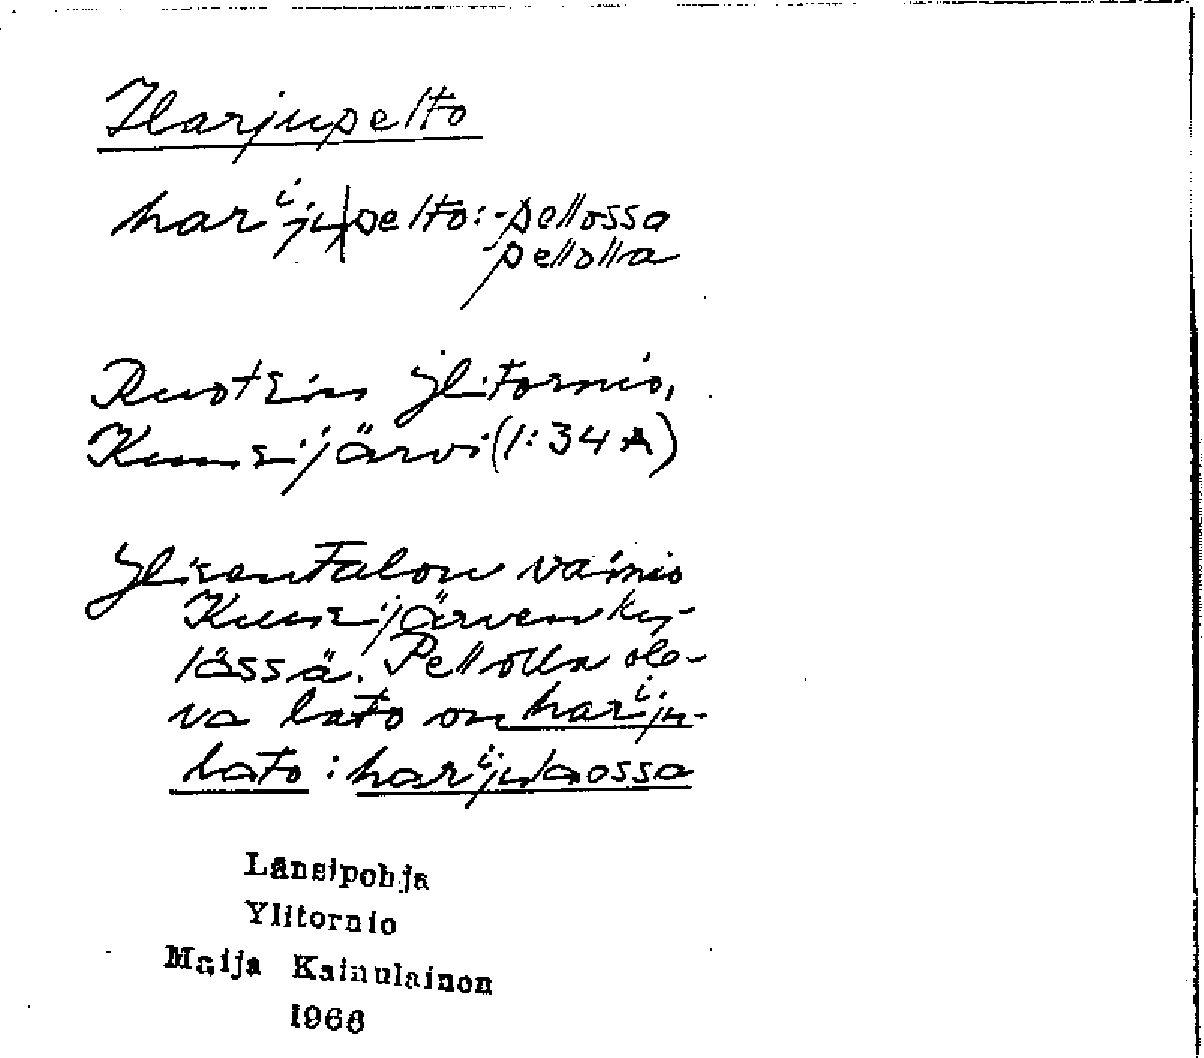 Harjupelto
harⁱju|pelto: -pellossa
-pellolla
Ruotsin Ylitornio,
Kuusijärvi (1:34 A)
Ylisentalon vainio
Kuusijärven ky-
lässä. Pellolla ole-
va lato on harⁱju-
lato : harⁱjulaossa
Länsipohja
Ylitornio
Maija Kainulainen
1966